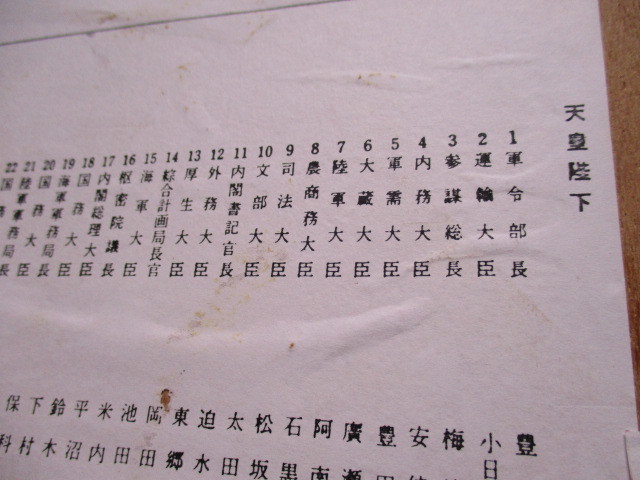 天皇陛下
1 軍令部長
2 運輸大臣
3 参謀総長
4 内務大臣
5 軍需大臣
6 大蔵大臣
7 陸軍大臣
8 農商務大臣
9 司法大臣
10 文部大臣
11 内閣書記官長
12 外務大臣
13 厚生大臣
14 綜合計画局長官
15 海軍大臣
16 枢密院議長
17 内閣総理大臣
18 国務大臣
19 海軍軍務局長
20 国務大臣
21 陸軍軍務局長
22 国務大臣
豊
小日
梅
安
豊田
廣瀬
阿南
石黒
松坂
太田
迫水
東郷
岡田
池田
米内
平沼
鈴木
下村
保科